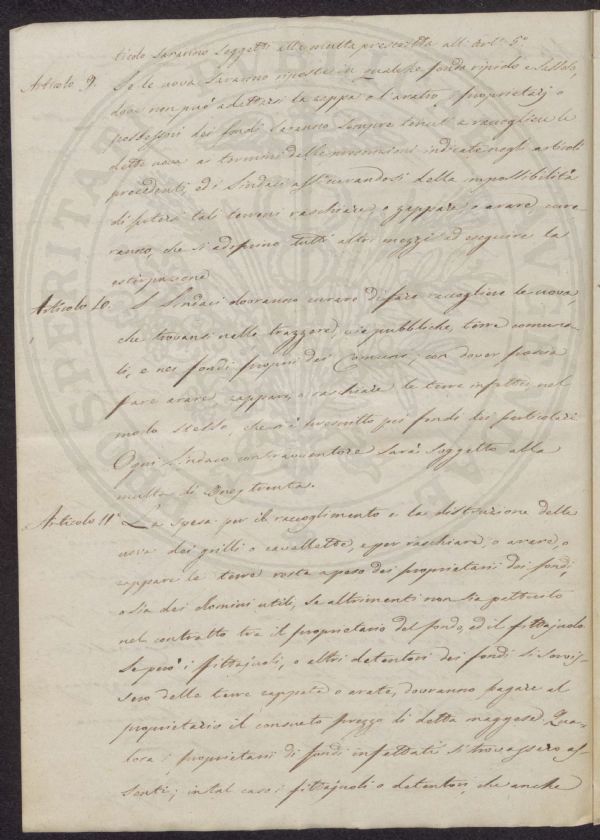 ticolo saranno soggetti alla multa prescritta all'Art.° 5°
Articolo 9. Se le uova saranno riposte in qualche fondo ripido e sassoso,
dove non può adattarsi la zappa o l'aratro, i proprietarj o
possessori dei fondi saranno sempre tenuti a raccogliere le
dette uova a termini delle prevenzioni indicate negli articoli
precedenti ed i Sindaci assicurandosi della impossibilità
di potersi tali terreni raschiare, o zappare, o arare cure-
ranno, che si adoprino tutti altri mezzi ad eseguire la
estirpazione
Articolo 10. I Sindaci dovranno curare di fare raccogliere le uova,
che trovansi nelle trazzere, vie pubbliche, terre comuna-
li, e nei fondi proprj dei Comuni, con dover poscia
fare arare, zappare, o raschiare le terre infette, nel
modo stesso, che si è prescritto pei fondi dei particolari
Ogni Sindaco contravventore sarà soggetto alla
multa di Onze trenta.
Articolo 11° La spesa per il raccoglimento e la distruzione delle
uova dei grilli o cavallette, e per raschiare, o arare, o
zappare le terre resta a peso dei proprietarii dei fondi,
o sia dei dominii utili, se altrimenti non sia pattuito
nel contratto tra il proprietario del fondo, ed il fittajuolo
Se però i fittajuoli, o altri detentori dei fondi si servis-
sero delle terre zappate o arate, dovranno pagare al
proprietario il consueto prezzo di detta maggese. Qua-
lora i proprietarii di fondi infettati si trovassero as-
senti; in tal caso i fittajuoli o detentori, che anche